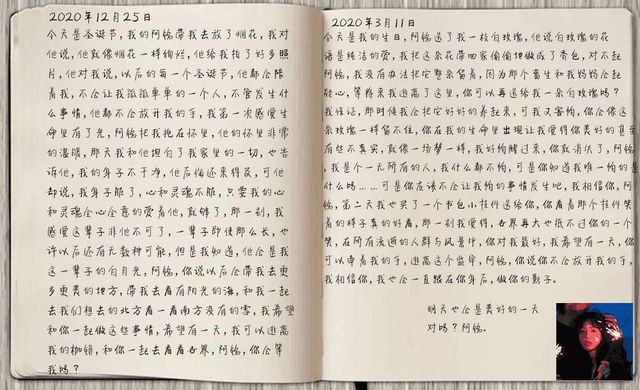 2020年12月25日
今天是圣诞节,我的阿畅带我去放了烟花,我对
他说,他就像烟花一样绚烂,他给我拍了好多照
片,他对我说,以后的每一个圣诞节,他都会陪
着我,不会让我孤孤单单的一个人,不管发生什
么事情,他都不会放开我的手,我第一次感觉生
命里有了光,阿畅把我抱在怀里,他的怀里非常
的温暖,那天我和他坦白了我家里的一切,也告
诉他,我的身子不干净,他后悔还来得及,可他
却说,我身子脏了,心和灵魂不脏,只要我的心
和灵魂全心全意的爱着他,就够了,那一刻,我
感觉这辈子非他不可了,一辈子即使那么长,也
许以后还有无数种可能,但是我知道,他会是我
这一辈子的白月光,阿畅,你说以后会带我去更
多更美的地方,带我去看有阳光的海,和我一起
去我们想去的北方看一看南方没有的雪,我希望
和你一起做这些事情,希望有一天,我可以逃离
我的枷锁,和你一起去看看世界,阿畅,你会等
我吗?
2020年3月11日
今天是我的生日,阿畅送了我一枝白玫瑰,他说白玫瑰的花
语是纯洁的爱,我把这朵花带回家偷偷地做成了香包,对不起
阿畅,我没有办法把它整朵留着,因为那个畜生和我妈妈会起
疑心,等将来我逃离了这里,你可以再送给我一朵白玫瑰吗?
我保证,那时候我会把它好好的养起来,可我又害怕,你会像这
朵玫瑰一样留不住,你在我的生命里出现让我觉得你美好的甚至
有些不真实,就像一场梦一样,我好怕醒过来,你就消失了,阿畅,
我是个一无所有的人,我什么都不怕,可是你知道我唯一怕的是
什么吗……可是你舍得不让我怕的事情发生吧,我相信你,阿
畅,第二天我也买了一个书包小挂件送给你,你看着那个挂件笑
着的样子真的好看,那一刻我觉得,世界再大也抵不过你的一个
笑,在所有流逝的人群与风景中,你对我最好,我希望有一天,你
可以牵着我的手,逃离这个监牢,阿畅,你说你不会放开我的手,
我相信你,我也会一直跟在你身后,做你的影子。
明天也会是美好的一天
对吗?阿畅。